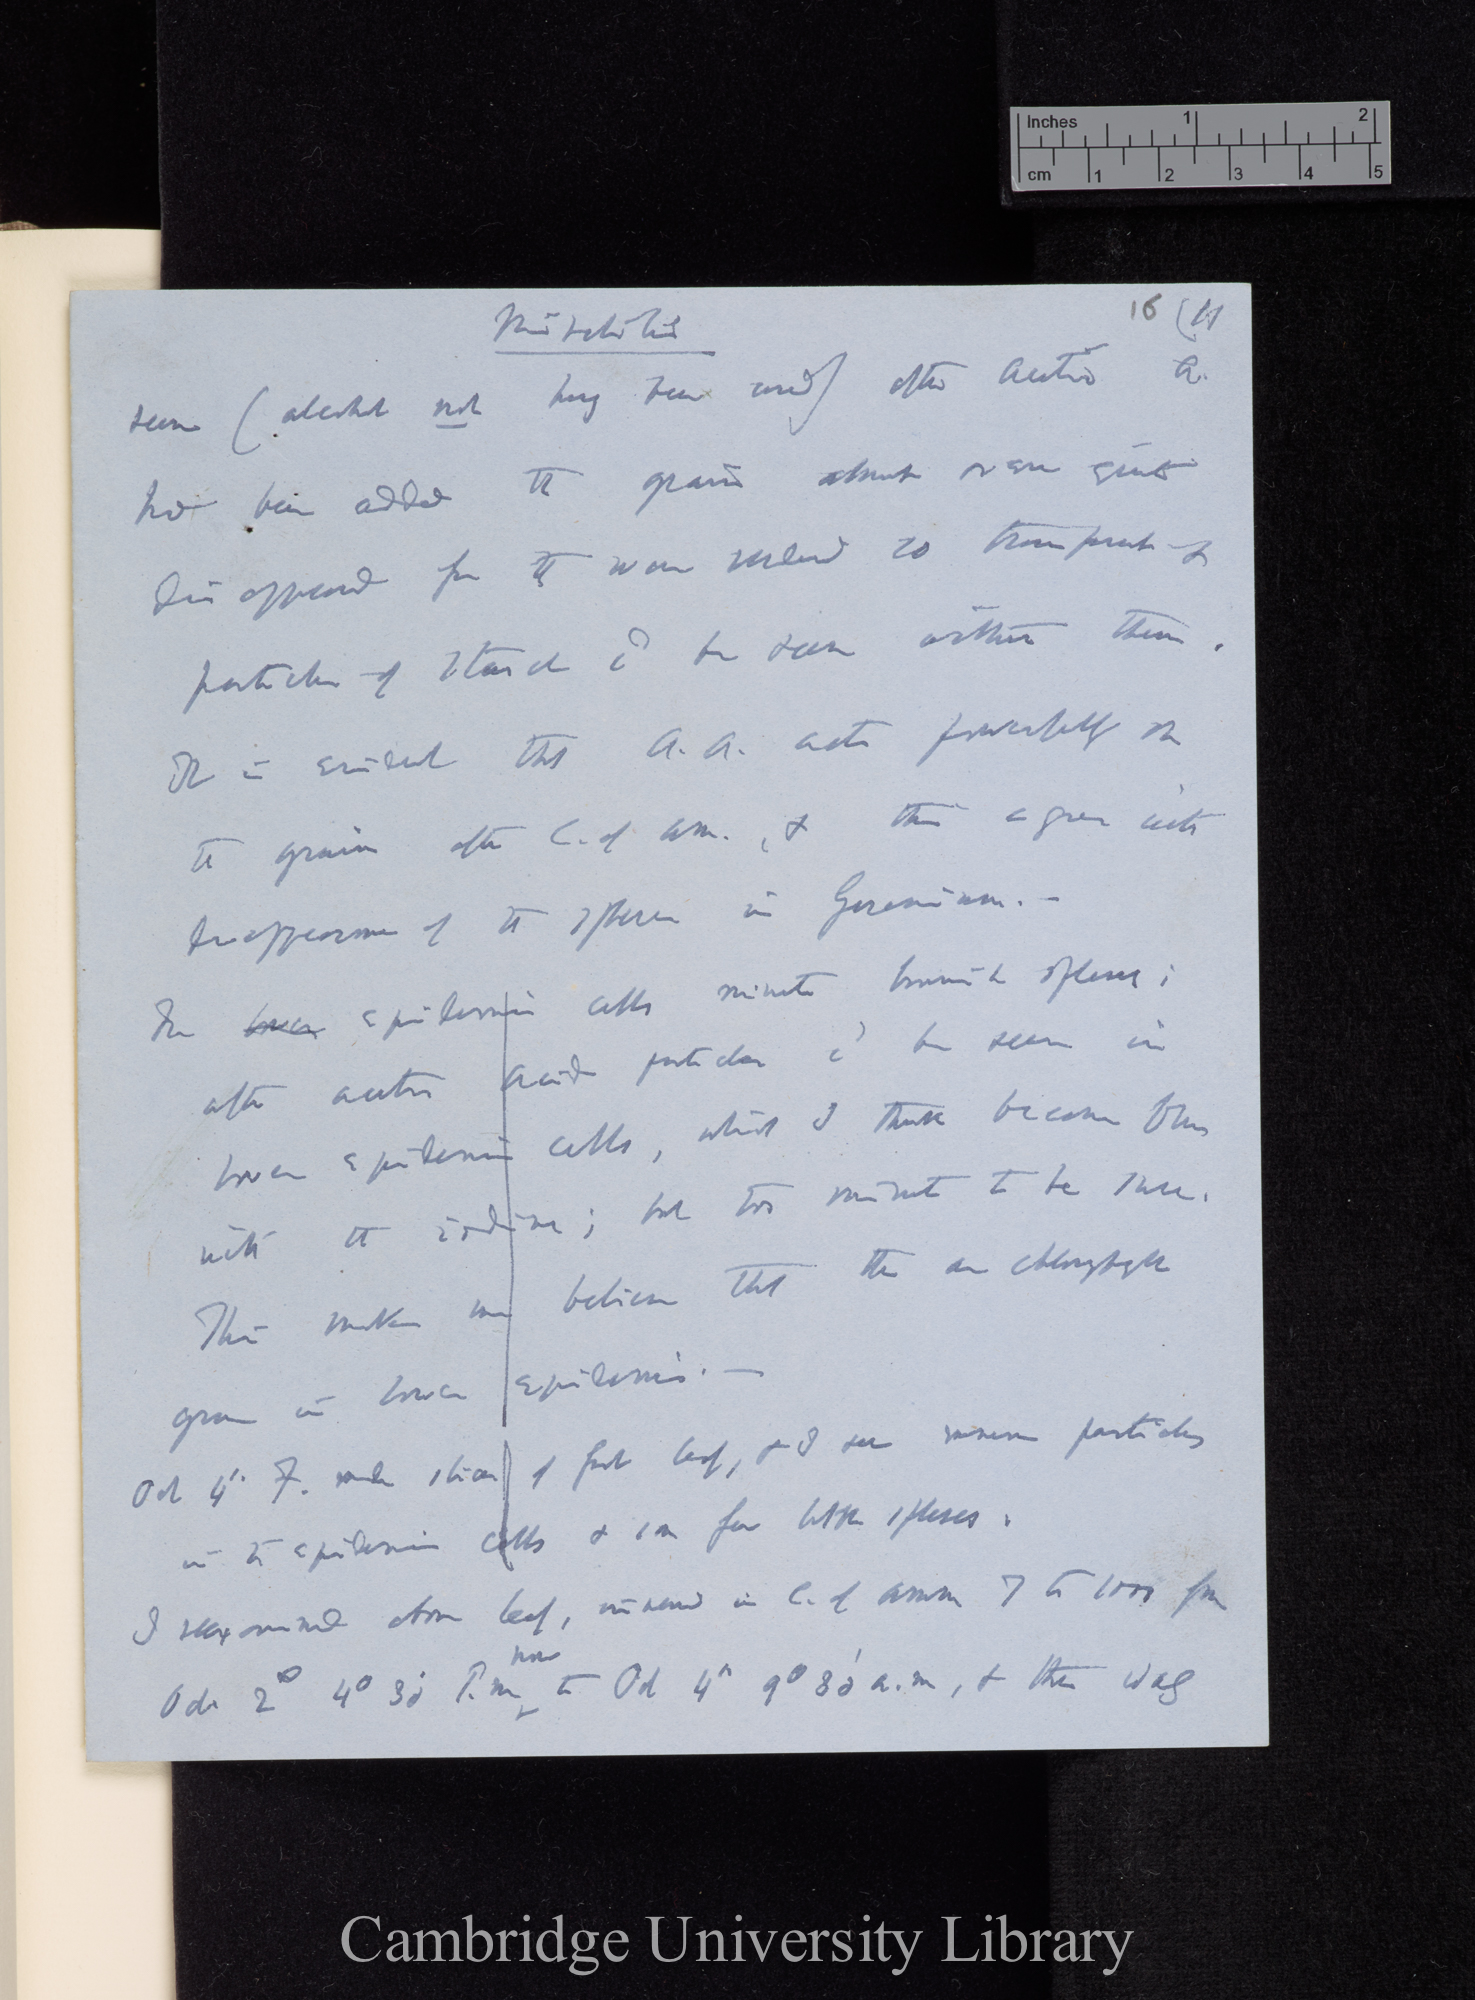 Inches 1 2
cm 1 2 3 4 5
16 (11
Mirabilis
seen (alcohol not hvg been used) after Acetic A.
had been added the grains almost or even quite
disappeared for they were reduced so transparent &
particles of starch cd be seen within them.
It is evident that A.A. acts powerfully on
the grains after C. of Am., & this agrees with
disappearance of the spheres in Geranium.—
In lower epidermic cells minute brownish spheres;
after acetic acid particles cd be seen in
lower epidermic cells, which I think became blue
with the iodine; but too minute to be sure.
This makes me believe that there are chlorophyll
grains in lower epidermis.—
Oct 4th F. made slices of fresh leaf, & I see numerous particles
in the epidermic cells & some few little spheres.
I reexamined above leaf, immersed in C. of Ammon 7 to 1000 from
Oct 2d 4° 30' P.m. to Oct 4th 9° 30' a.m, & there was
now
Cambridge University Library